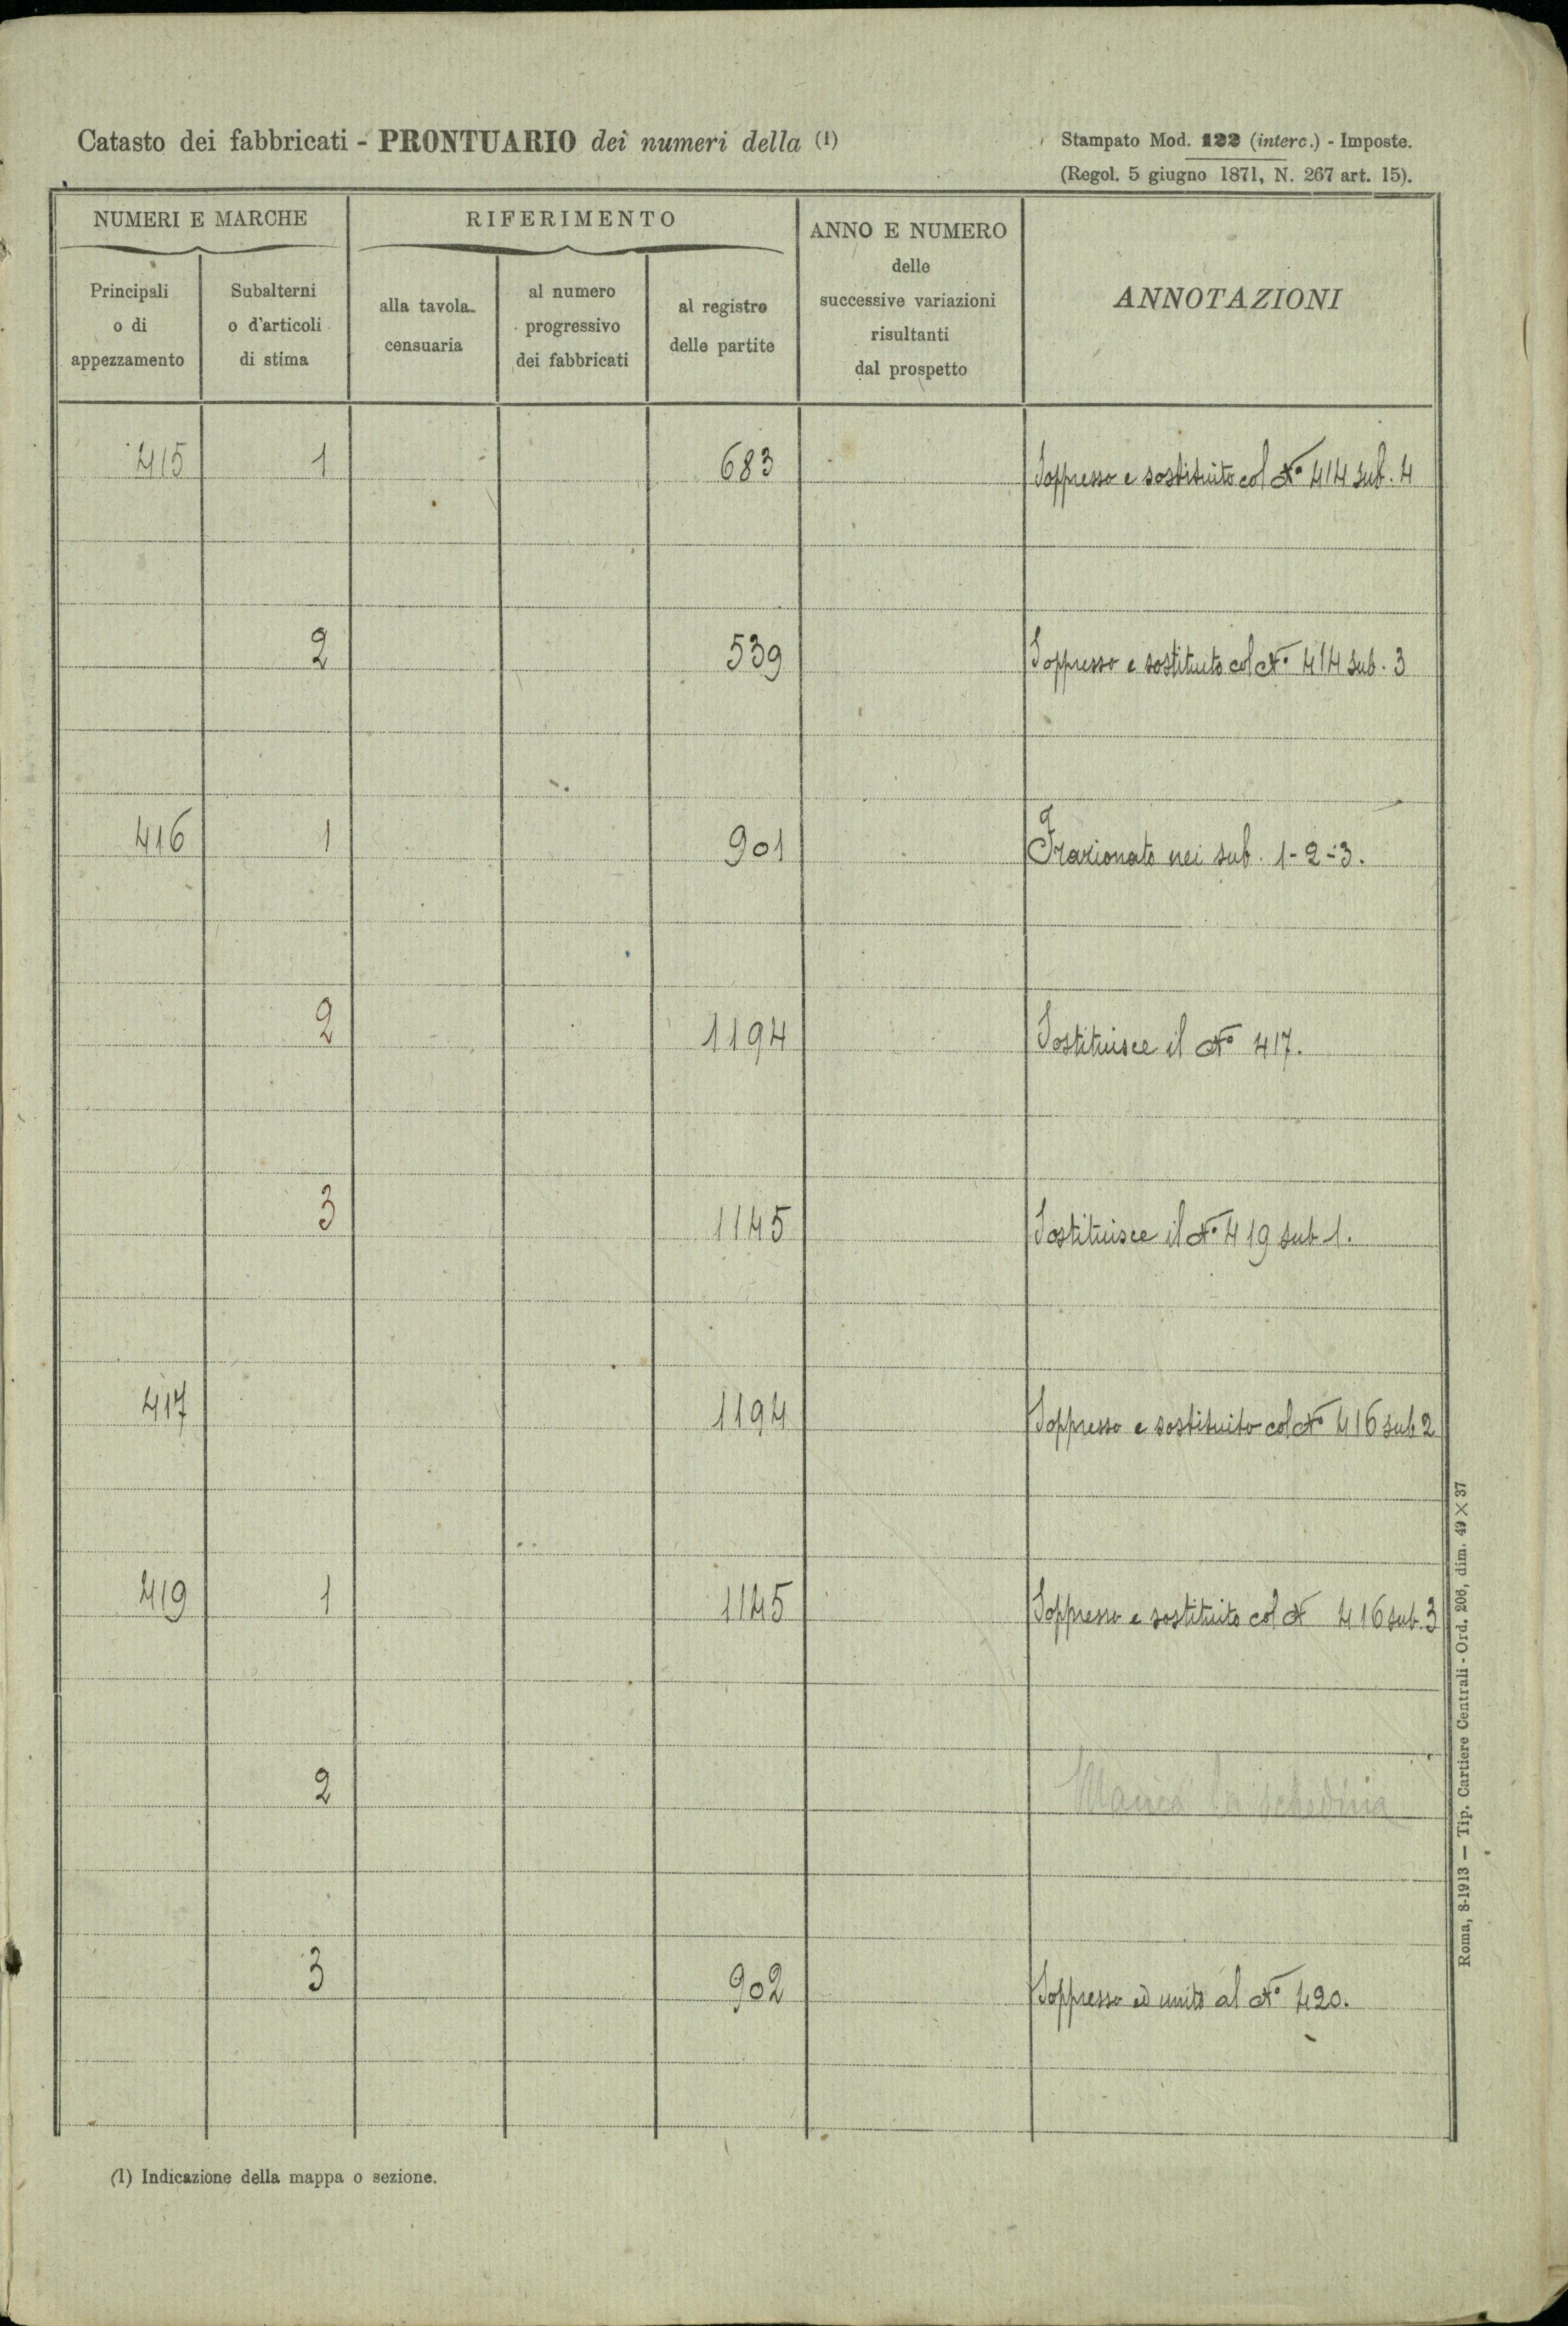 Catasto dei fabbricati - PRONTUARIO dei numeri della (1)
Stampato Mod. 122 (interc.) - Imposte.
(Regol. 5 giugno 1871, N. 267 art. 15).
NUMERI E MARCHE
RIFERIMENTO
ANNO E NUMERO
delle
successive variazioni
risultanti
dal prospetto
ANNOTAZIONI
Principali
o di
appezzamento
Subalterni
o d'articoli
di stima
alla tavola
censuaria
al numero
progressivo
dei fabbricati
al registro
delle partite
415 1 683 Soppresso e sostituito col N° 414 sub. 4
2 539 Soppresso e sostituito col N° 414 sub. 3
416 1 901 Frazionato nei sub. 1-2-3.
2 1194 Sostituisce il N° 417.
3 1145 Sostituisce il N° 419 sub 1.
417 1194 Soppresso e sostituito col N° 416 sub 2
419 1 1145 Soppresso e sostituito col N 416 sub. 3
2 Manca la schedina
3 902 Soppresso ed unito al N° 420.
(1) Indicazione della mappa o sezione.
Roma, 8-1913 — Tip. Cartiere Centrali - Ord. 206, dim. 49 × 37